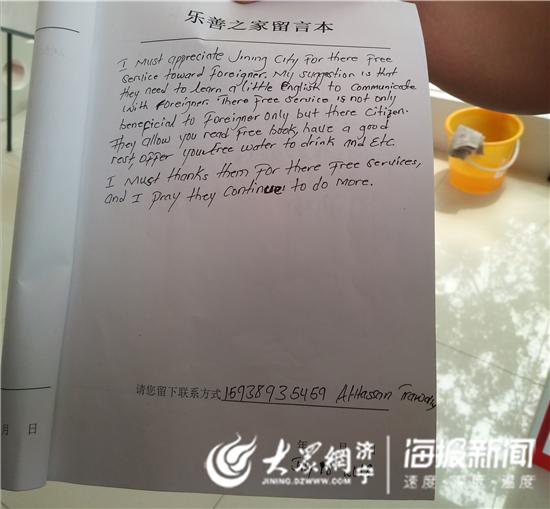 乐善之家留言本
I Must appreciate Jining City For there Free
Service toward Foreigner. My suggestion is that
they need to learn a little English to communicate
with Foreigner. There Free Service is not only
beneficial to Foreigner only but there Citizen.
They allow you read Free book, have a good
rest, offer you free water to drink and Etc.
I Must thanks them For there Free Services,
and I pray they continue to do More.
请您留下联系方式 15938935459 AlHassan
月 日
年 月
大众网 济宁 海报新闻
JINING.DZWWW.COM 速度·深度·温度